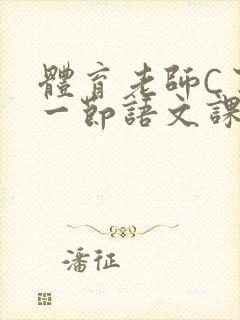 體育老師C
一節語文課
潘征